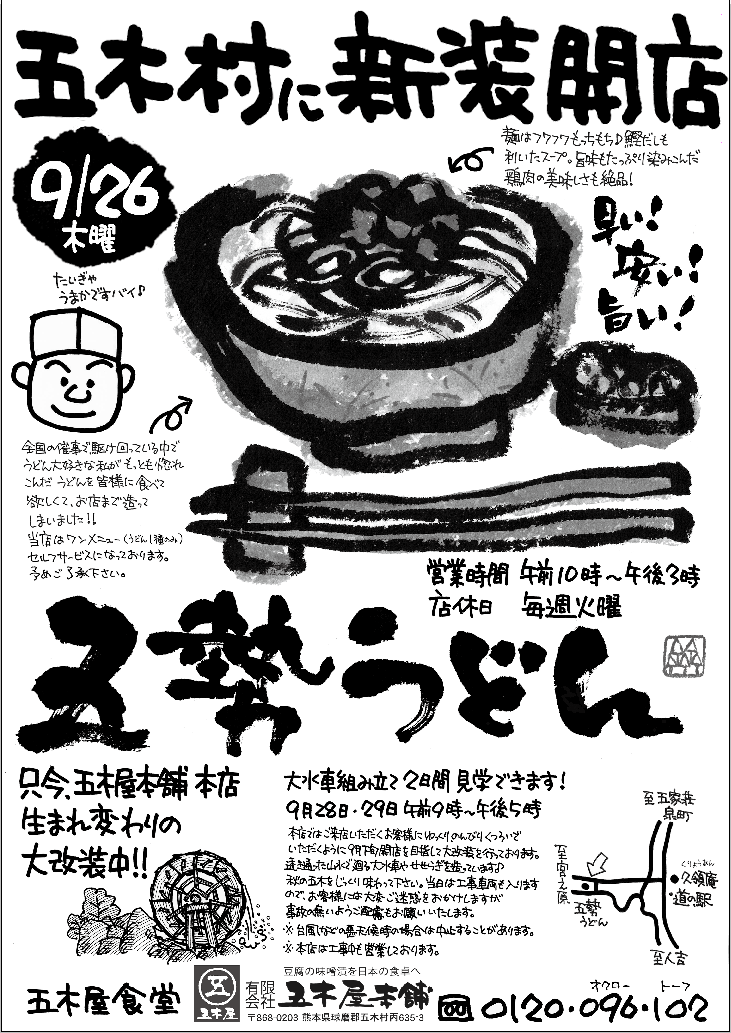 五木村に新装開店
9/26
木曜
麺はフワフワもっちもち♪鰹だしも
利いたスープ。旨味もたっぷり染みこんだ
鶏肉の美味しさも絶品!
早い!
安い!
旨い!
たいぎゃ
うまかですバイ♪
全国の催事で駆け回っている中で
うどん大好きな私がもっとも惚れ
こんだうどんを皆様に食べて
欲しくて、お店まで造って
しまいました!!
当店はワンメニュー(うどん1種のみ)
セルフサービスになっております。
予めご了承下さい。
営業時間 午前10時~午後3時
店休日 毎週火曜
五勢うどん
只今、五木屋本舗 本店
生まれ変わりの
大改装中!!
大水車組み立て2日間見学できます!
9月28日・29日 午前9時~午後5時
本店ではご来店いただくお客様にゆっくりのんびりくつろいで
いただくように9月下旬開店を目指して大改装を行っております。
透き通った山水で廻る大水車やせせらぎを造っています♪
秋の五木をじっくり味わって下さい。当日は工事車両も入ります
ので、お客様には大変ご迷惑をおかけしますが
事故の無いようご配慮もお願いいたします。
※台風などの悪天候時の場合は中止することがあります。
※本店は工事中も営業しております。
至五家荘
泉町
至宮之原
くりょうあん
久領庵
道の駅
五勢
うどん
至人吉
豆腐の味噌漬を日本の食卓へ
五木屋食堂
五
五木屋
有限会社 五木屋本舗
〒868-0203 熊本県球磨郡五木村丙635-3
オクロー トーフ
0120・096・102